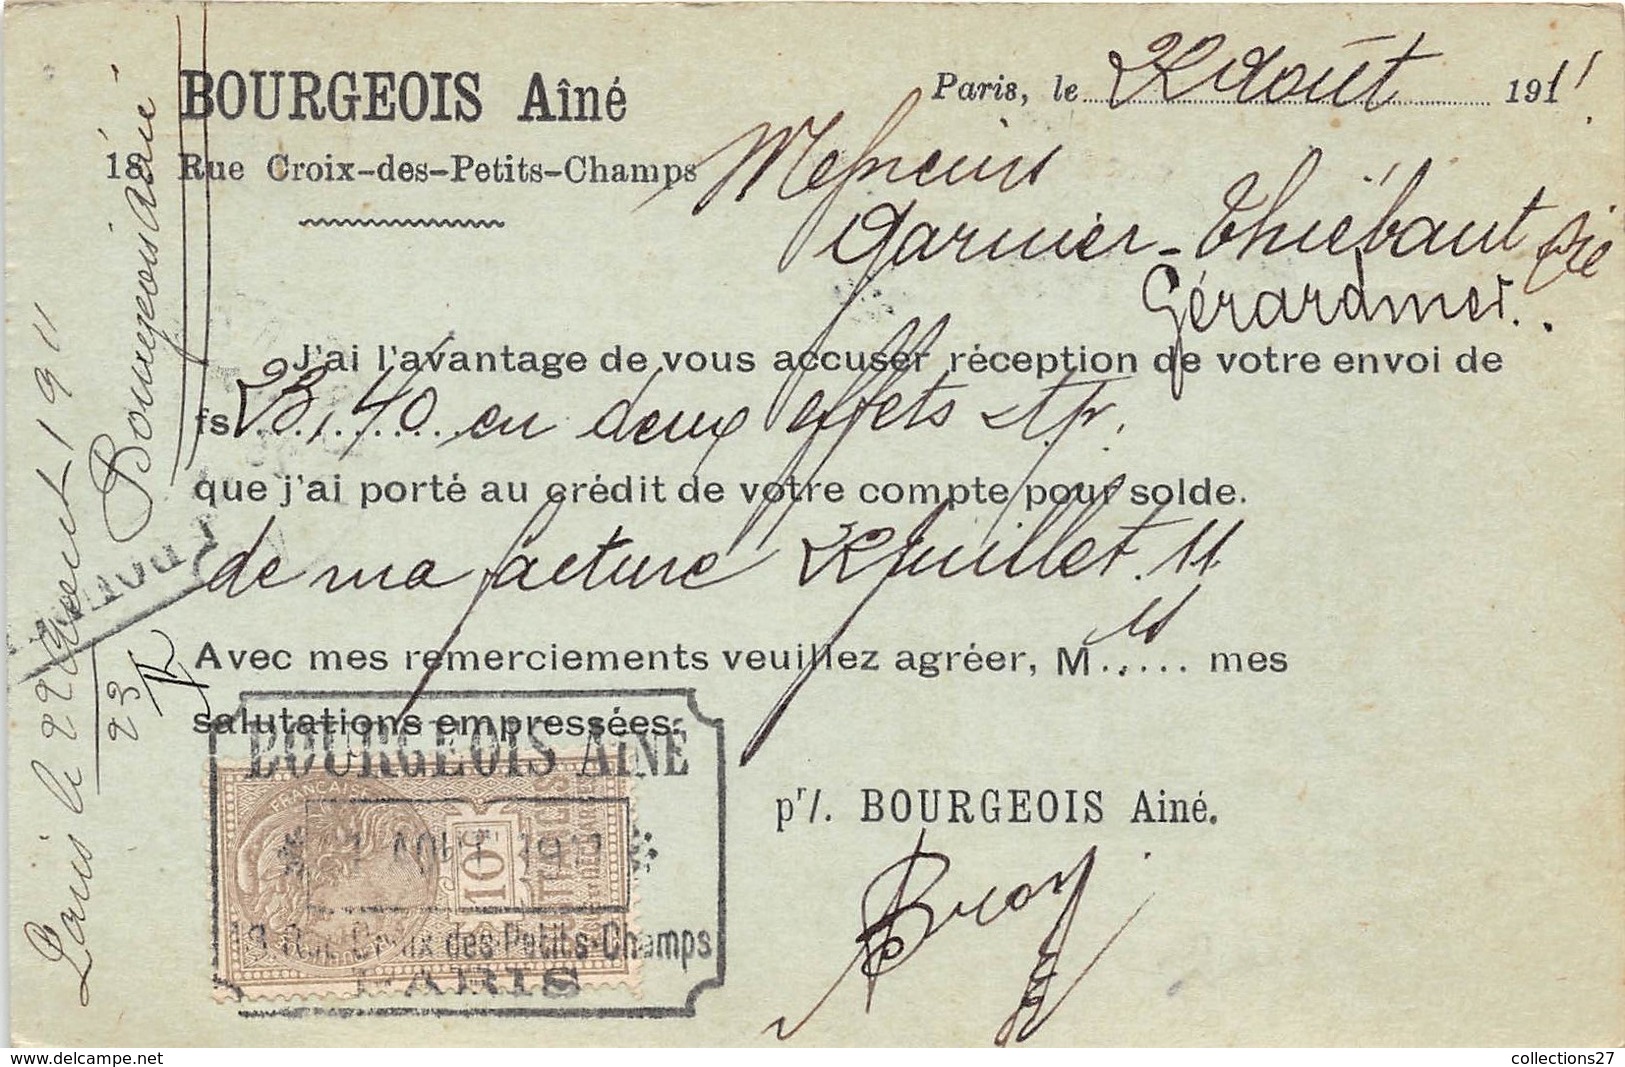 BOURGEOIS Aîné
18, Rue Croix-des-Petits-Champs
Paris, le 22 Août 1911
Messieurs
Garnier-Thiébaut & Cie
Gérardmer.
J'ai l'avantage de vous accuser réception de votre envoi de
fs 23,40 en deux effets
que j'ai porté au crédit de votre compte pour solde.
de ma facture 22 Juillet 11
Avec mes remerciements veuillez agréer, M rs mes
salutations empressées.
pr/. BOURGEOIS Ainé.
BOURGEOIS AINÉ
AOUT 1911
18 Rue Croix des Petits-Champs
PARIS
FRANÇAISE
10
Paris le 22 Août 1911
Bourgeois Ainé
23
collections27